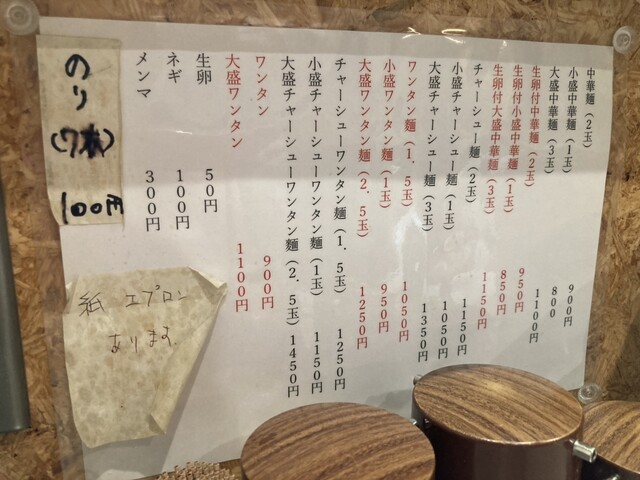 中華麺（2玉） 900円
小盛中華麺（1玉） 800
大盛中華麺（3玉） 1100円
生卵付中華麺（2玉） 950円
生卵付小盛中華麺（1玉） 850円
生卵付大盛中華麺（3玉） 1150円
チャーシュー麺（2玉） 1150円
小盛チャーシュー麺（1玉） 1050円
大盛チャーシュー麺（3玉） 1350円
ワンタン麺（1．5玉） 1050円
小盛ワンタン麺（1玉） 950円
大盛ワンタン麺（2．5玉） 1250円
チャーシューワンタン麺（1．5玉） 1250円
小盛チャーシューワンタン麺（1玉） 1150円
大盛チャーシューワンタン麺（2．5玉） 1450円
ワンタン 900円
大盛ワンタン 1100円
生卵 50円
ネギ 100円
メンマ 300円
のり（7枚）100円
紙エプロン
あります